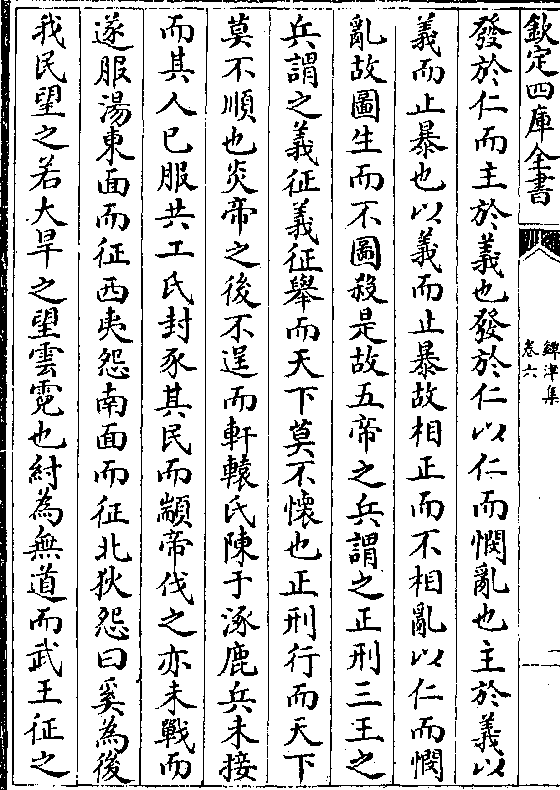 欽定四庫全書
鐔津集
卷六
二
發於仁而主於義也發於仁以仁而憫亂也主於義以
義而止暴也以義而止暴故相正而不相亂以仁而憫
亂故圖生而不圖殺是故五帝之兵謂之正刑三王之
兵謂之義征義征舉而天下莫不懷也正刑行而天下
莫不順也炎帝之後不逞而軒轅氏陳于涿鹿兵未接
而其人已服共工氏封豕其民而顓帝伐之亦未戰而
遂服湯東面而征西夷怨南面而征北狄怨曰奚為後
我民望之若大旱之望雲霓也紂為無道而武王征之